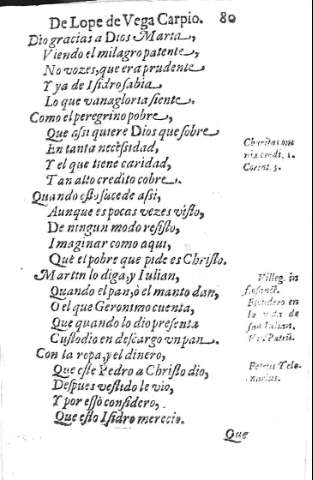 De Lope de Vega Carpio. 80
Dio gracias a Dios Marta,
Viendo el milagro patente,
No vozes, que era prudente
Y ya de Isidro sabia
Lo que vanagloria siente.
Como el peregrino pobre,
Que assi quiere Dios que sobre
En tanta necessidad,
Y el que tiene caridad,
Tan alto credito cobre.
Quando esto sucede assi,
Aunque es pocas vezes visto,
De ningun modo resisto,
Imaginar como aqui,
Que el pobre que pide es Christo.
Martin lo diga, y Iulian,
Quando el pan, ò el manto dan,
O el que Geronimo cuenta,
Que quando lo dio presenta
Custodio en descargo un pan.
Con la ropa, y el dinero,
Que este Pedro a Christo dio,
Despues vestido le vio,
Y por esso considero,
Que esto Isidro merecio.
Que
Charitas om
nia credit, 1.
Corint. 3.
Villeg. in
sanct.
en
la vida de
san Iulian.
Petrus Telo-
narius.